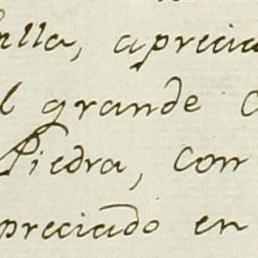 illa, aprecia
l grande c
Piedra, con
preciado en